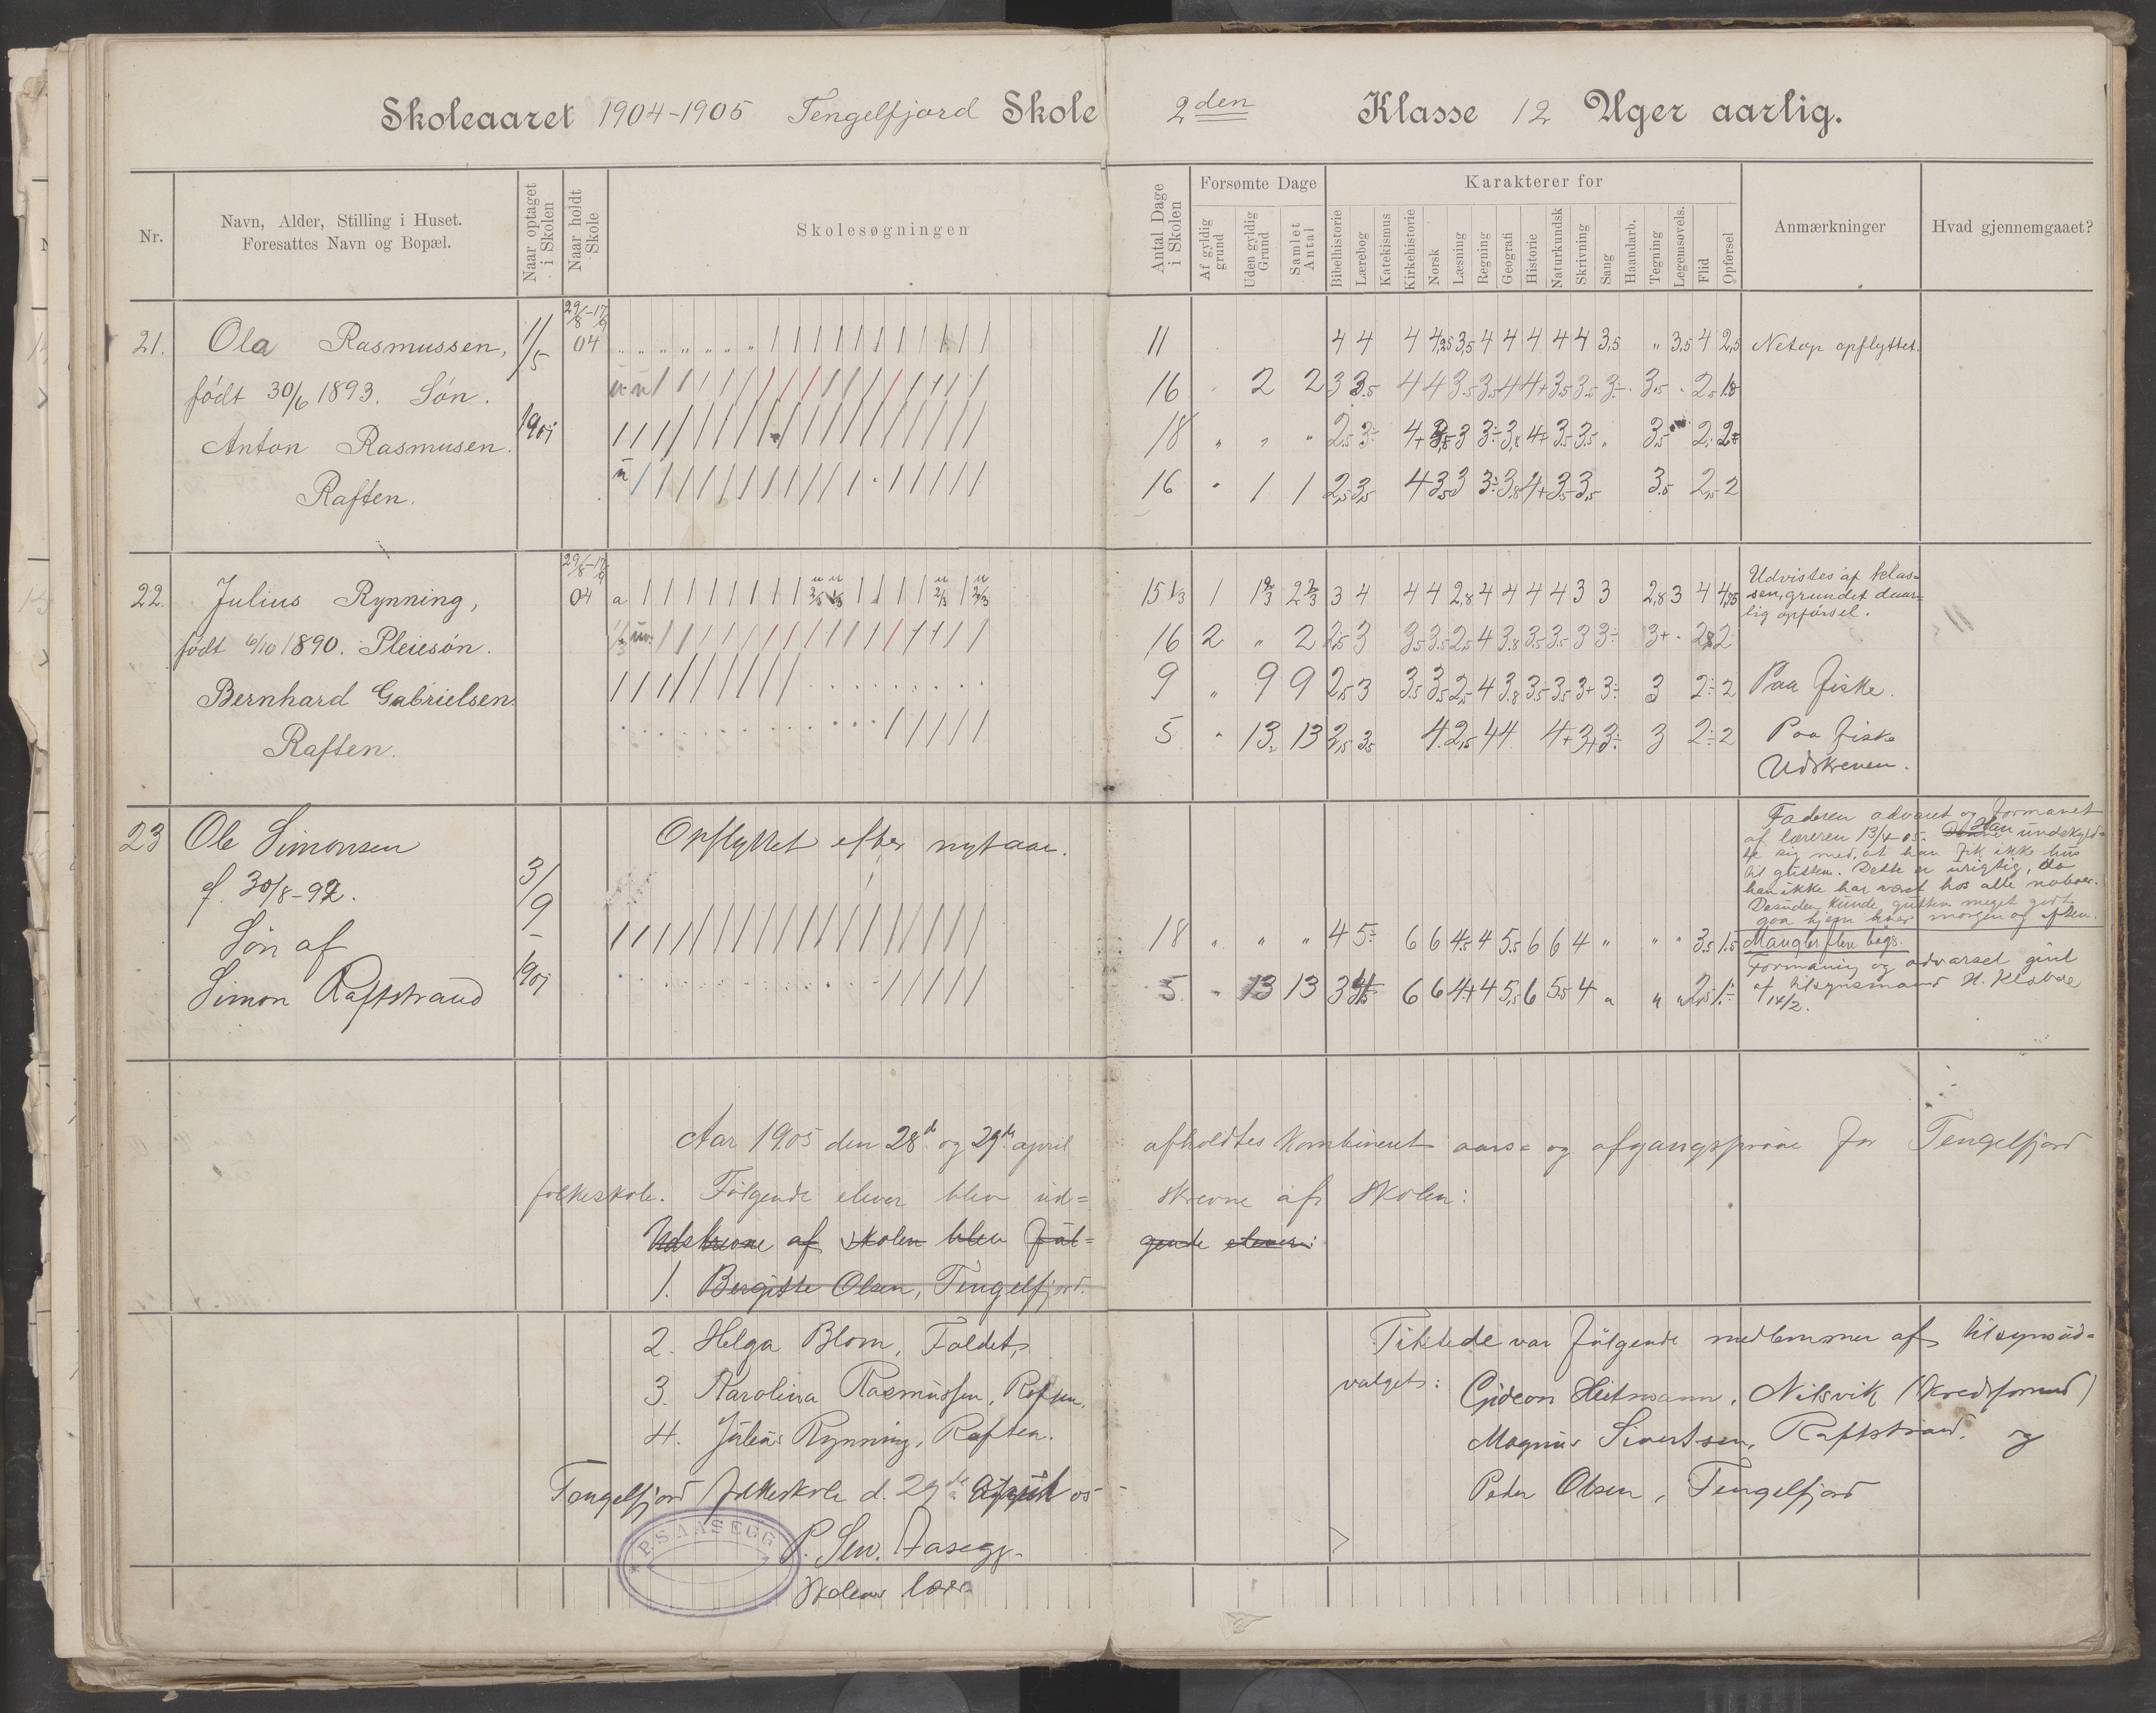 Skoleaaret 1904-1905 Tengelfjord Skole 2den Klasse 12 Uger aarlig.
Nr.
Navn, Alder, Stilling i Huset.
Foresattes Navn og Bopæl.
Naar optaget i Skolen
Naar holdt Skole
Skolesøgningen
Antal Dage i Skolen
Forsømte Dage
Af gyldig grund
Uden gyldig Grund
Samlet Antal
Karakterer for
Bibelhistorie
Lærebog
Katekismus
Kirkehistorie
Norsk
Læsning
Regning
Geografi
Historie
Naturkundsk
Skrivning
Sang
Haandarb.
Tegning
Legemsøvels.
Flid
Opførsel
Anmærkninger
Hvad gjennemgaaet?
21. Ola Rasmussen, 1/5 29/8-17/9 04 11 4 4 4 4,25 3,5 4 4 4 4 4 3,5 " 3,5 4 2,5 Netop opflyttet.
født 30/6 1893. Søn. 16 2 2 3 3,5 4 4 3,5 3,5 4 4+ 3,5 3,5 3÷ 3,5 2,5 1,8
Anton Rasmusen. 1901 18 " " " 2,5 3÷ 4+ 3,5 3 3÷ 3,8 4+ 3,5 3,5 " 3,5 2, 2÷
Raften. 16 1 1 2,5 3,5 4 3,5 3 3÷ 3,8 4+ 3,5 3,5 3,5 2,5 2
22. Julius Rynning, 29/8-17/9 04 a 15 1/3 1 1 2/3 2 2/3 3 4 4 4 2,8 4 4 4 4 3 3 2,8 3 4 4,25
Udvistes af klas-
sen, grundet daar-
lig opførsel.
født 6/10 1890. Pleiesøn. 16 2 " 2 2,5 3 3,5 3,5 2,5 4 3,8 3,5 3,5 3 3÷ 3+ 2,8 2
Bernhard Gabrielsen. 9 " 9 9 2,5 3 3,5 3,5 2,5 4 3,8 3,5 3,5 3+ 3÷ 3 2÷ 2 Paa fiske.
Raften. 5 " 13 13 2,5 3,5 4 2,5 4 4 4+ 3+ 3÷ 3 2÷ 2 Paa fiske
Udskreven.
23 Ole Simonsen 3/9 - 1901 Opflyttet efter nytaar.
f. 30/8-92.
Søn af 18 " " " 4 5÷ 6 6 4,5 4 5,5 6 6 4 " " " 3,5 1,5
Simon Raftstrand 5 " 13 13 3 6 6 4+ 4 5,5 6 5,5 4 " " " 2,5 1÷
Faderen advaret og formanet
af læreren 13/4-05. Han undskyld-
te sig med, at han fik ikke hus
til gutten. Dette er urigtig, da
han ikke har været hos alle naboer.
Desuden kunde gutten meget godt
gaa hjem hver morgen og aften.
Mangler flere bøgr.
Formaning og advarsel givet
af tilsynsmand H.
14/2.
Aar 1905 den 28d og 29de april afholdtes kombineret aars= og afgangsprøve for Tengelfjord
folkeskole. Følgende elever blev ud= skrevne af skolen:
Udskrevne af skolen blev føl= gende elever:
1. Bergitte Olsen, Tingelfjord.
2. Helga Blom, Foldet,
3. Karolina Rasmussen, Raften.
4. Julius Rynning, Raften.
Tengelfjord folkeskole d. 29de april 05
P. Sev. Aasegg.
skolens lærer
P.S. AASEGG
Tilstede var følgende medlemmer af tilsynsud=
valget: Gideon Heitmann, Nilsvik (kredsformd)
Magnus Sivertsen, Raftstrand, og
Peder Olsen, Tengelfjord